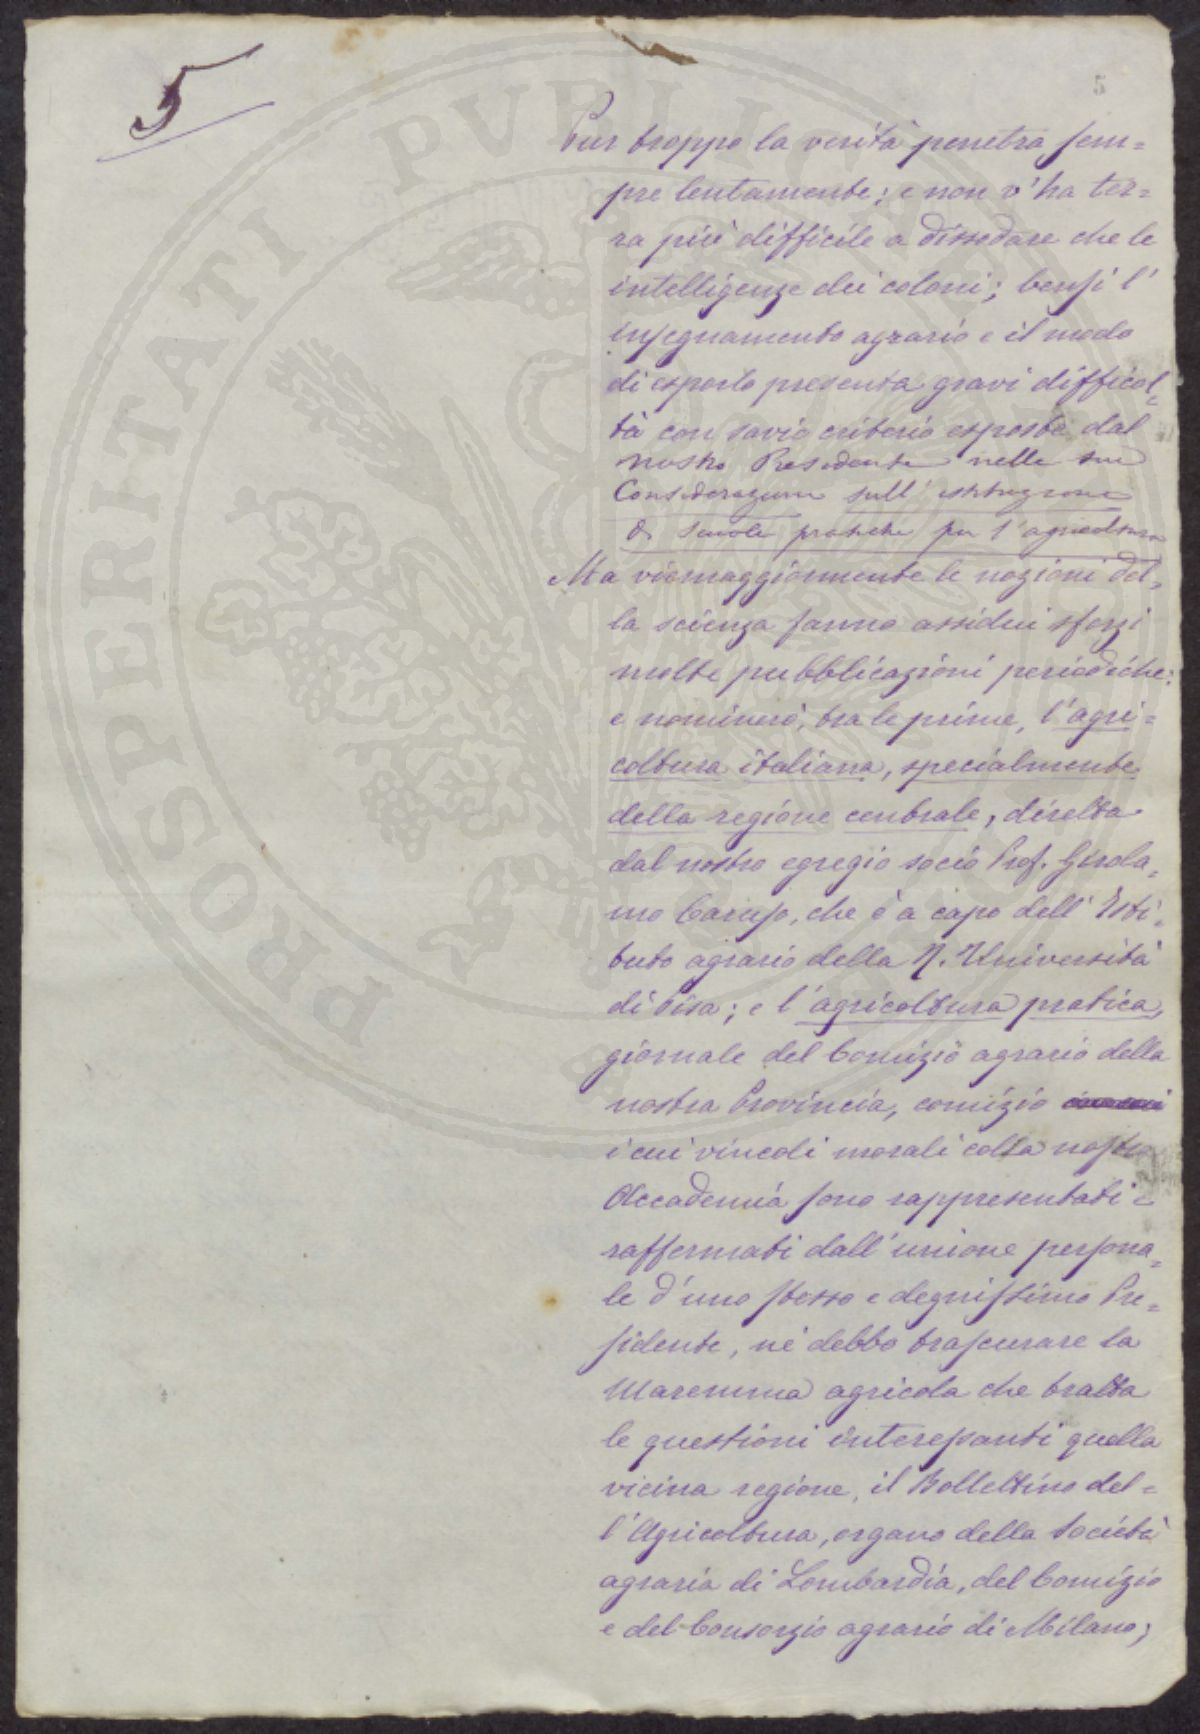 5
5
Pur troppo la verità penetra sem=
pre lentamente; e non v'ha ter=
ra più difficile a dissodare che le
intelligenze dei coloni; bensì l'
insegnamento agrario e il modo
di esporlo presenta gravi difficol=
tà con savio criterio esposte dal
nostro Presidente nelle sue
Considerazioni sull'istituzione
di scuole pratiche per l'agricoltura
Ma viemaggiormente le nozioni del=
la scienza fanno assidui sforzi
molte pubblicazioni periodiche:
e nominerò, tra le prime, l'agri=
coltura italiana, specialmente
della regione centrale, diretta
dal nostro egregio socio Prof. Girola=
mo Caruso, che è a capo dell'Isti=
tuto agrario della R. Università
di Pisa; e l'agricoltura pratica,
giornale del Comizio agrario della
nostra Provincia, comizio
i cui vincoli morali colla nostra
Accademia sono rappresentati=
raffermati dall'unione persona=
le d'uno stesso e degnissimo Pre=
sidente, nè debbo trascurare la
Maremma agricola che tratta
le questioni interessanti quella
vicina regione, il Bollettino del=
l'Agricoltura, organo della Società
agraria di Lombardia, del Comizio
e del Consorzio agrario di Milano;
PROSPERITATI PVBLICAE